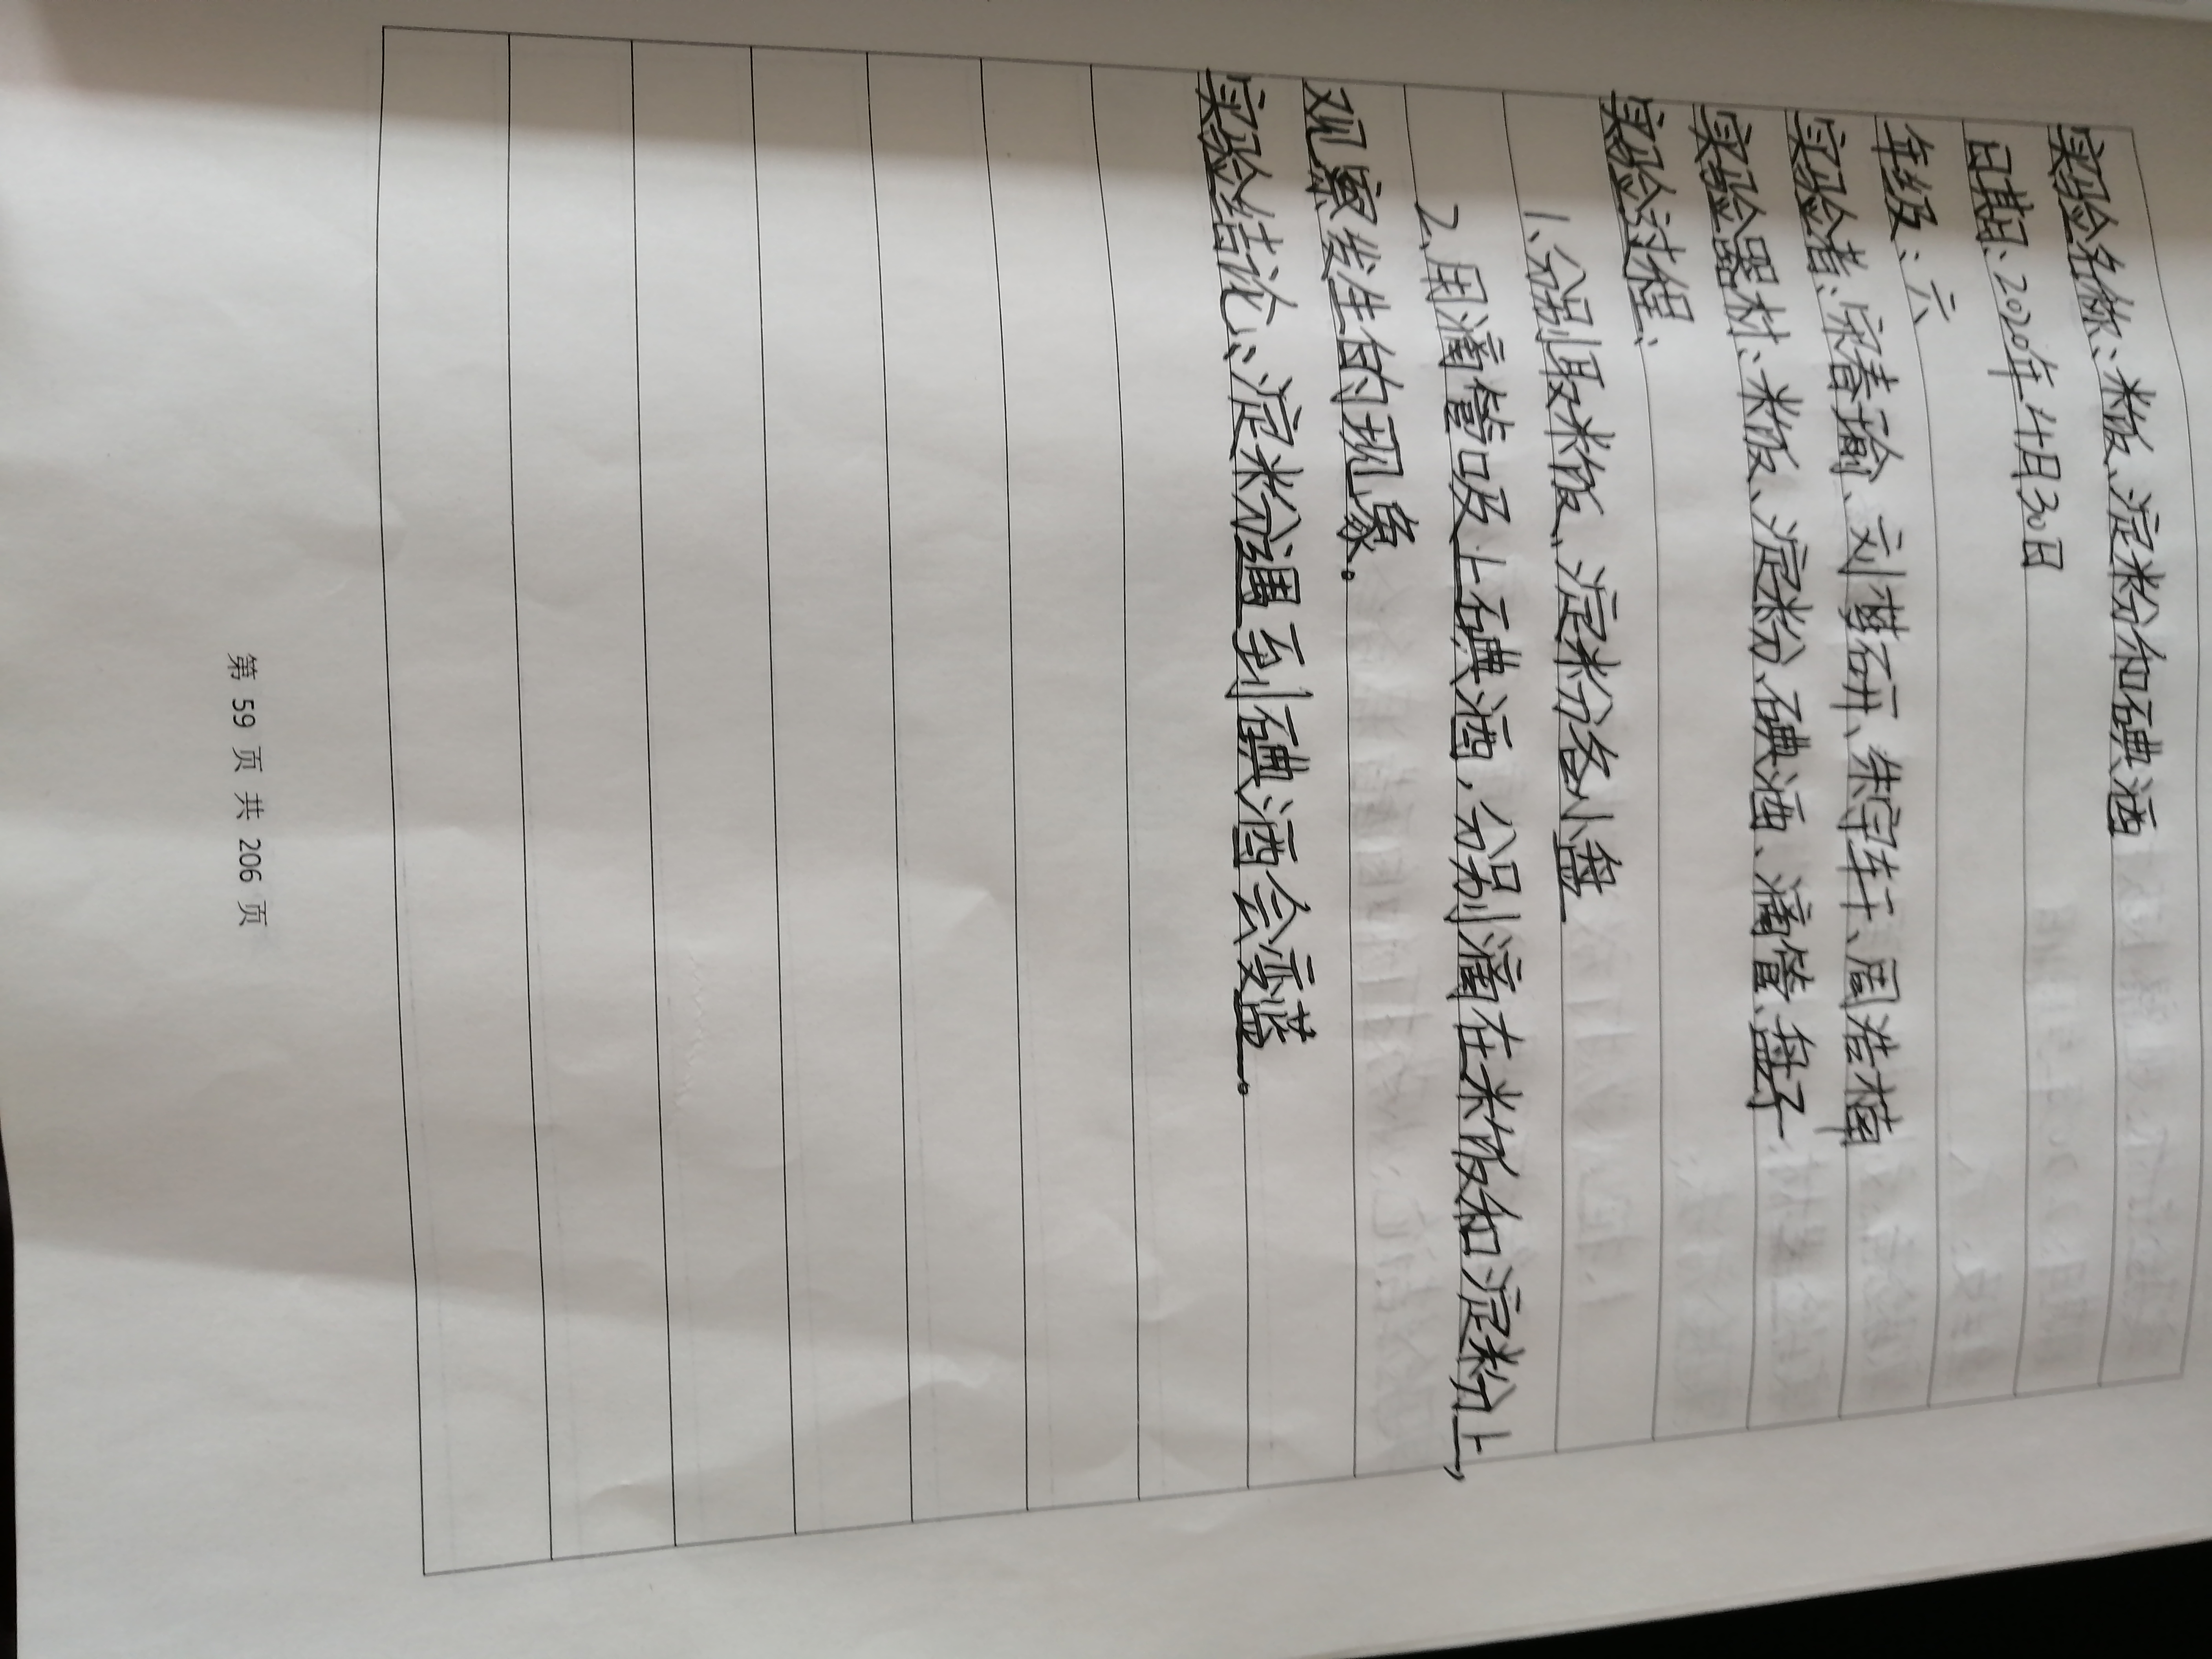 实验名称：米饭、淀粉和碘酒
日期：2020年11月30日
年级：六
实验者：宗春瑜、刘梦研、朱宇轩、周浩楠
实验器材：米饭、淀粉、碘酒、滴管、盘子
实验过程：
1、分别取米饭、淀粉各小盘
2、用滴管吸上碘酒，分别滴在米饭和淀粉上，
观察发生的现象。
实验结论：淀粉遇到碘酒会变蓝。
第 59 页 共 206 页